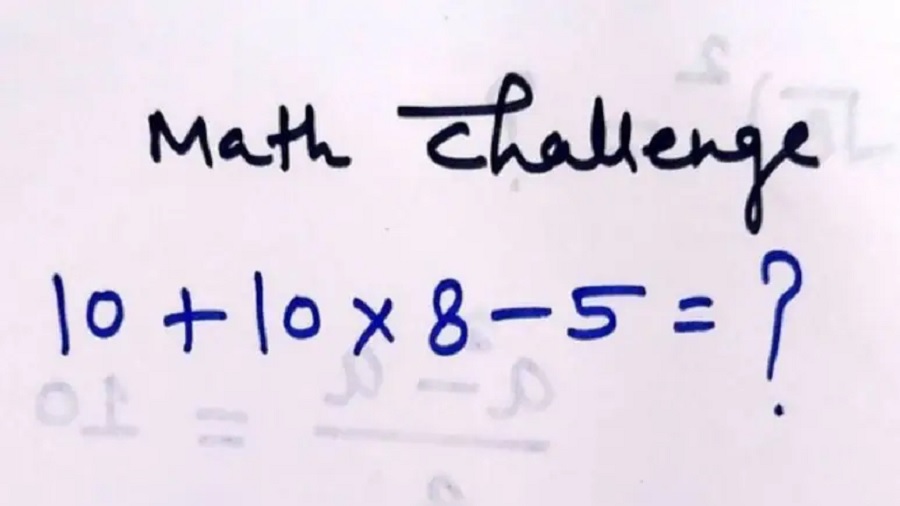 Math Challenge
10 + 10 × 8 - 5 = ?